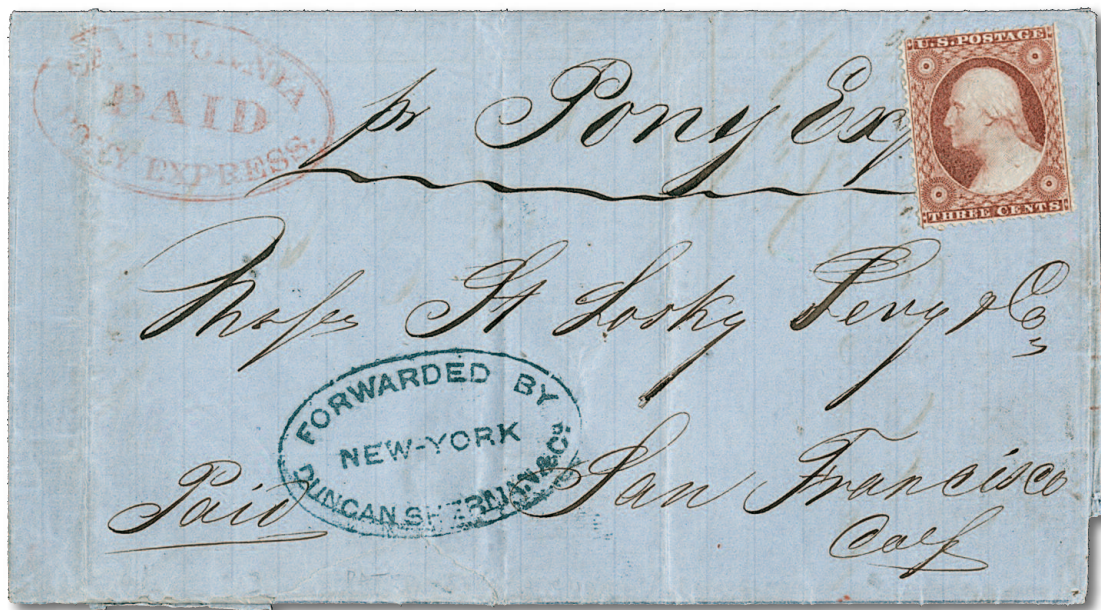 CALIFORNIA
PAID
PONY EXPRESS.
pr Pony Exp
U.S. POSTAGE
THREE CENTS
Messrs St Losky Levy & Co
FORWARDED BY
NEW-YORK
DUNCAN, SHERMAN & Co.
Paid
San Francisco
Calf